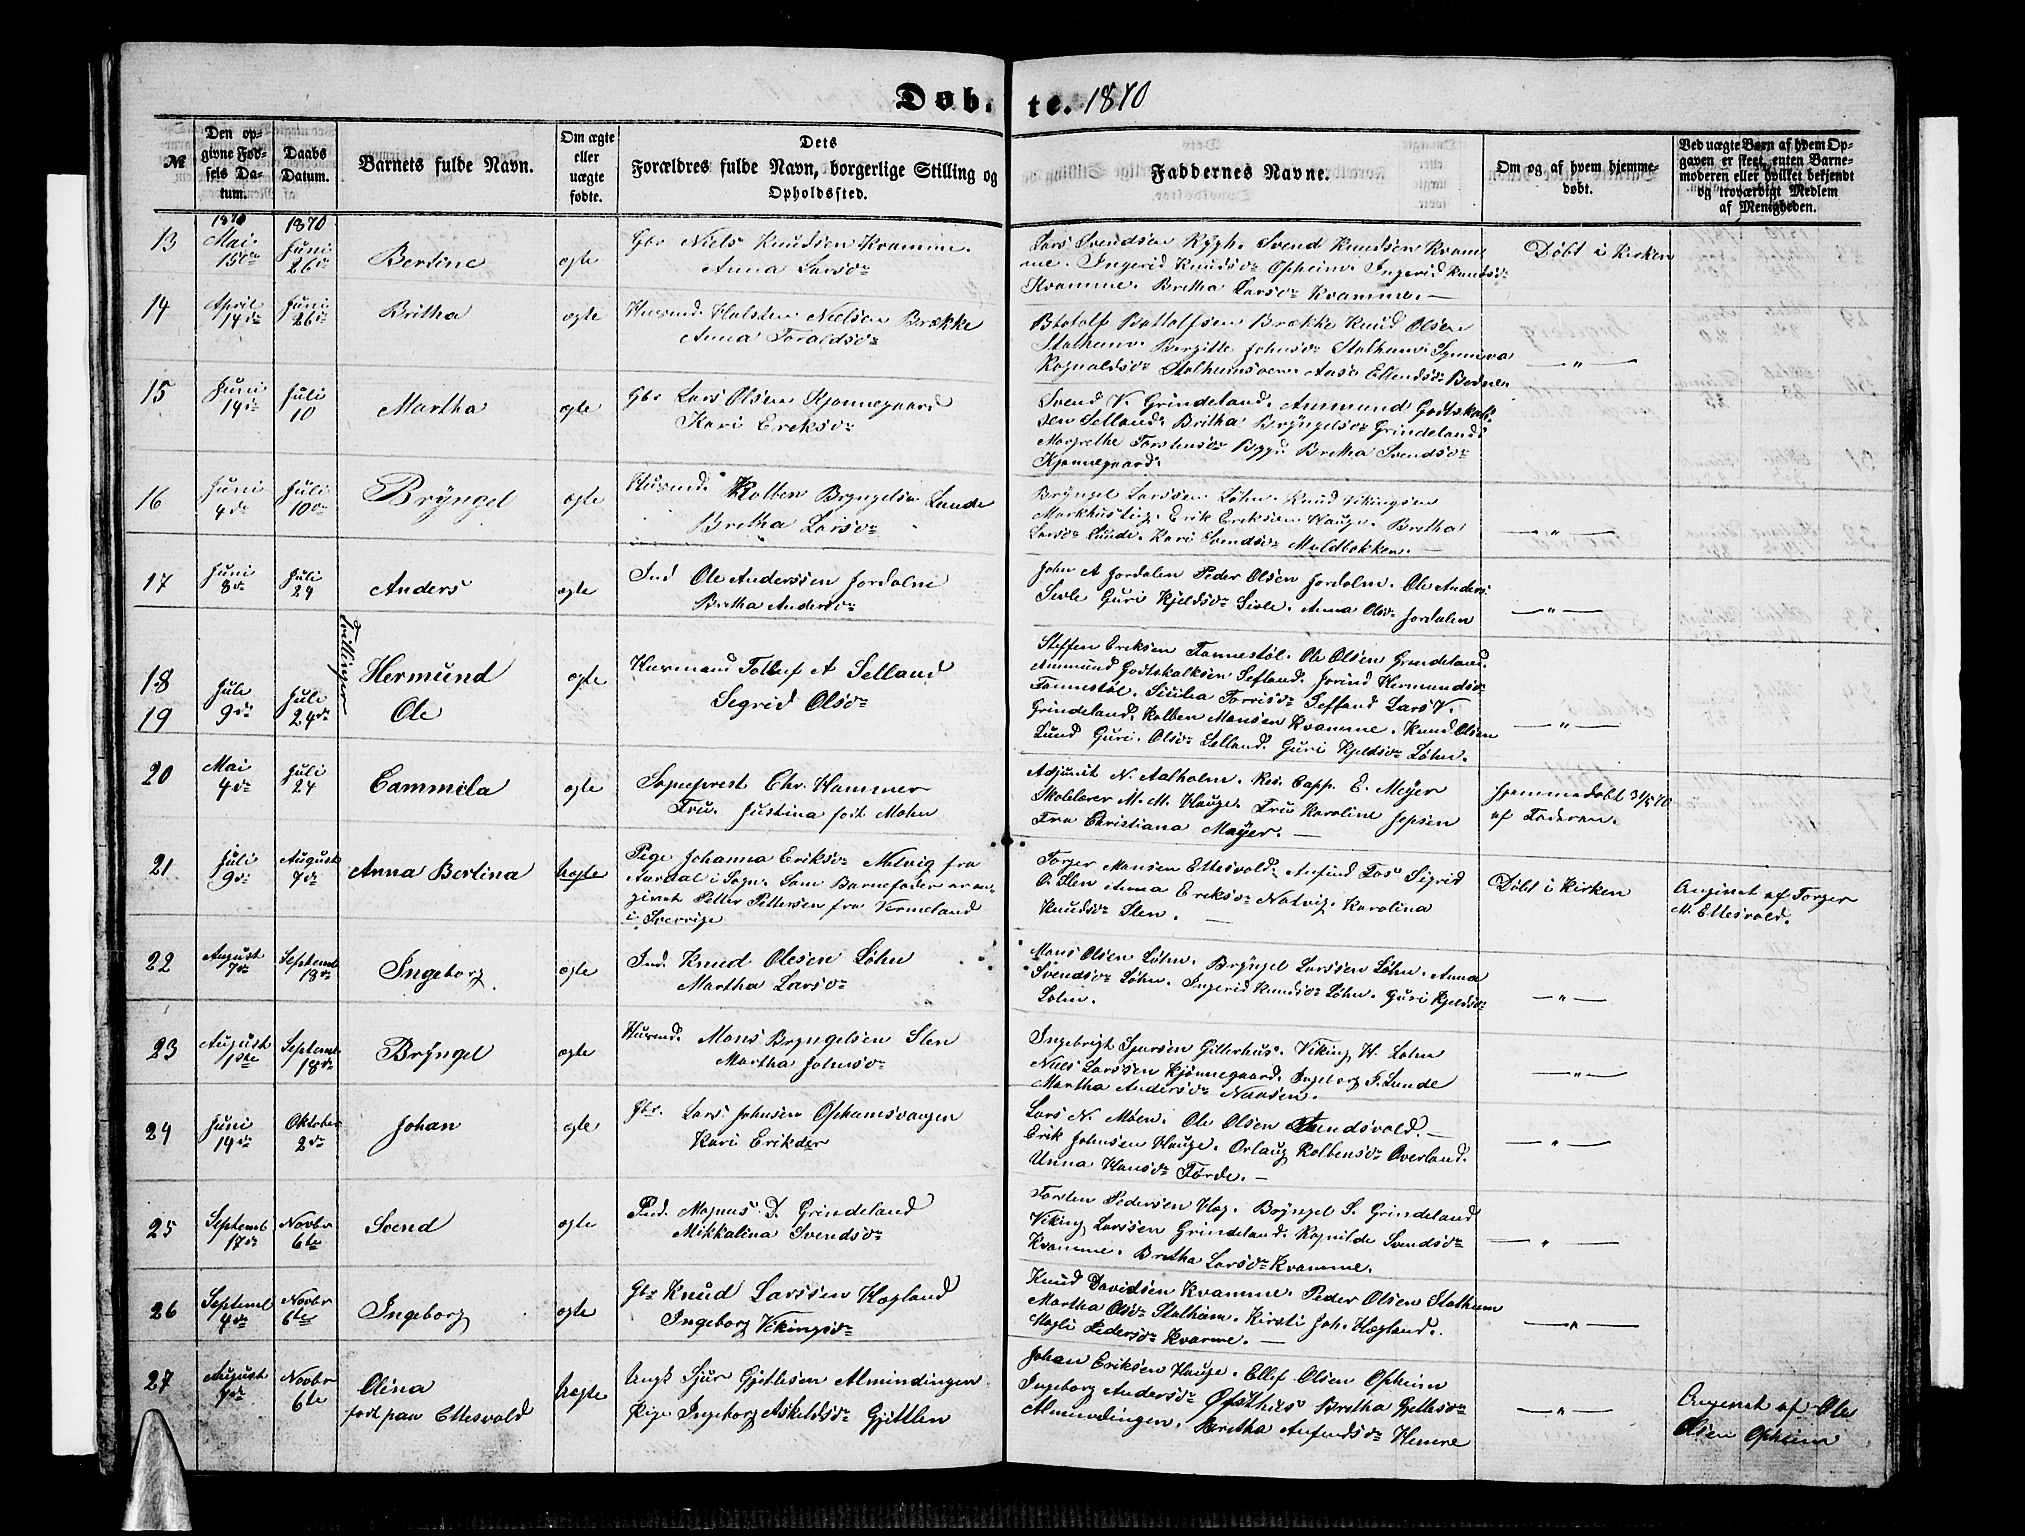 Døb-te. 1870
№
Den op-
givne Fød-
sels Da-
tum.
Daabs
Datum.
Barnets fulde Navn.
Om ægte
eller
uægte
fødte.
Dets
Forældres fulde Navn, borgerlige Stilling og
Opholdssted.
Faddernes Navne.
Om og af hvem hjemme-
døbt.
Ved uægte Barn af hvem Op-
gaven er skeet, enten Barne-
moderen eller hvilket bekjendt
og troværdigt Medlem
af Menigheden.
1870 1870
13 Mai 15de Juni 26de Bertine ægte
Gbr Niels Knudsen Kvamme.
Anna Larsdr
Lars Svendsen Rygh. Svend Knudsen Kvam-
me. Ingerid Knudsdr Opheim. Ingerid Knudsdr
Kvamme. Britha Larsdr Kvamme. —
Døbt i Kirken
14 April 14de Juni 26de Britha ægte
Husmd. Halsten Nielsen Brække
Anna Toraldsdr
Btotolf Bottolfsen Brække Knud Olsen
Stalheim. Bergitte Johnsdr Stalheim. Synneva
Ragnaldsdr Stalheimsoen. Aase Ellendsdr
— " —
15 Juni 14de Juli 10 Martha ægte
Gbr Lars Olsen Kjønnegaard
Kari Eriksdr
Svend V. Grindeland. Ammund Godtskalk-
sen Selland. Britha Bryngelsdr Grindeland
Margrethe Torstensdr Bygd. Bretha Svendsdr
Kjønnegaard.
16 Juni 4de Juli 10de Bryngel ægte
Husmd. Kolben Bryngelsen Lunde
Bretha Larsdr
Bryngel Larssen Løhn. Knud Vikingsen
Markhusteig. Erik Eriksen Hauge. Bretha
Larsdr Lunde. Kari Svendsdr Myldbakken. —
— " —
17 Juni 8de Juli 24 Anders ægte
Ind Ole Anderssen Jordalen
Bretha Andersdr
John A Jordalen Peder Olsen Jordalen. Ole Anders.
Sivle Guri Kjeldsdr Sivle. Anna Olsdr Jordalen
— " —
Tvillinger
18 Juli 9de Juli 24de Hermund ægte
19 Ole
Husmand Tollef A Selland
Segrid Olsdr
Steffen Eriksen Tonnestøl. Ole Olsen Grindeland.
Ammund Godtskalksen Selland. Jorind Hermundsdr
Tonnestøl. Sicilia Torrisdr Selland Lars V.
Grindeland. Kolben Monsen Kvamme. Knud Olsen
Lund Guri. Olsdr Selland. Guri Kjeldsdr Løhn.
— " —
20 Mai 4de Juli 24 Cammila ægte
Sogneprest Chr. Hammer
Fru. Justina født Mohn
Adjunit N. Aalholm. Res. Capp. E. Meyer
Skolelærer M. M. Hauge. Fru Karoline Jepsen
Fru Christiana Mayer. —
hjemmedøbt 31/5 70
af Faderen.
21 Juli 9de August 7de Anna Bertina uægte
Pige Johanna Eriksdr Natvig fra
Aardal i Sogn. Som Barnefader er an-
givet Petter Pettersen fra Vermeland
i Sverrige
Torger Monsen Ettesvold. Anfind Fos Sigrid
O. Slen Anna Eriksdr Natvig. Karolina
Knudsdr Slen. —
Døbt i Kirken
Angivet af Torger
M. Ettesvold.
22 August 7de Septembr 18de Ingeborg ægte
Ind. Knud Olesen Løhn
Martha Larsdr
Mons Olsen Løhn. Bryngel Larssen Løhn. Anna
Svendsdr Løhn. Ingerid Knudsdr Løhn. Guri Kjeldsdr
Løhn.
— " —
23 August 1ste Septembr 18de Bryngel ægte
Husmd. Mons Bryngelsen Slen
Martha Johnsdr
Ingebrigt Sjursen Gillerhus. Viking H. Løhn
Niels Larssen Kjønnegaard. Ingeborg J. Lunde
Martha Andersdr Naasen.
— " —
24 Juni 14de Oktober 2de Johan ægte
Gbr. Lars Johnsen Ophamsvangen
Kari Erikdtr
Lars N. Moen. Ole Olsen Tvendsvold. —
Erik Johnsen Hauge. Orlaug Kolbensdr Øverland.
Unna Hansdr Førde. —
— " —
25 Septemb 17de Novbr 6te Svend ægte
Ind. Magnus D. Grindeland
Mikkalina Svendsdr
Torsten Pedersen Hag. Bryngel S. Grindeland
Viking Larssen Grindeland. Ragnilde Svendsdr
Kvamme. Bretha Larsdr Kvamme.
— " —
26 Septembr 4de Novbr 6te Ingeborg ægte
Gbr Knud Larssen Høgland
Ingeborg Vikingsdr
Knud Davidsen Kvamme. Peder Olsen Stalheim
Martha Olsdr Stalheim. Kirsti Joh. Høgland.
Magli Pedersdr Kvamme. —
— " —
27 August 7de Novbr 6te Olina uægte
født paa Ettesvold
Ungk Sjur Gjetlesen Almindingen
Pige Ingeborg Askeldsdr Gjettlen
Johan Eriksen Hauge. Ellef Olsen Opheim
Ingeborg Andersdr Bretha Gjetlesdr
Almindingen. Bretha Anfindsdr Hemre
— " —
Angivet af Ole
Olsen Opheim